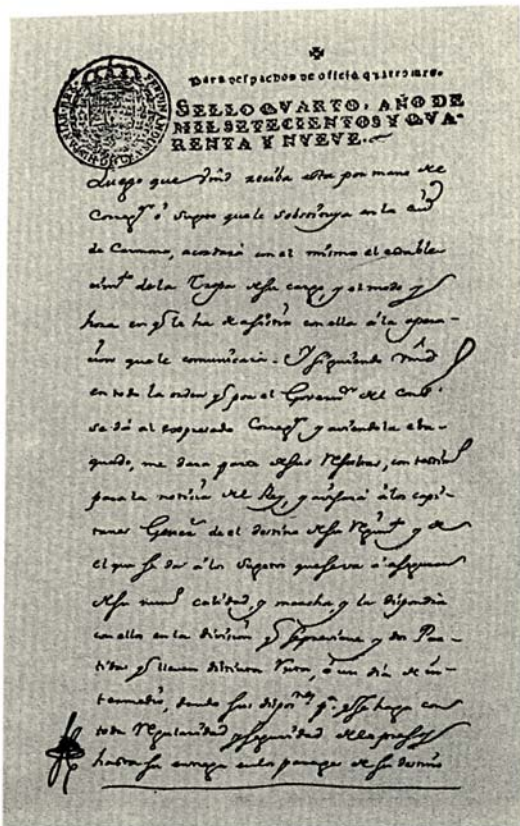 ✠
Para despachos de oficio quatro mrs.
SELLO QVARTO, AÑO DE
MIL SETECIENTOS Y QVA-
RENTA Y NVEVE.
Luego que Vmd reciva esta por mano de
Correxr o Sugeto que le
de Carmona, acordará con el mismo el estable
cimto de la Tropa de su cargo, y el modo y
hora en q le ha de asistir con ella á la opera-
cion que le comunicará. Y siguiendo Vmd
en todo la orden q por el Governr del Conso
se dá al expresado Correxr y aviendola eba-
quado, me dara parte de sus
para la noticia del Rey, y avisará á los capi-
tanes de el destino de su y de
el que se dá á los Sugetos que lleva á asegurar
de su numo calidad, y marcha, y la
con ellos en la division q se previene y dos Par-
tidas q lleven á un dia de in-
termedio, dando sus para q esto se haga con
toda regularidad y seguridad de los presos
hasta su entrega en los parages de su destino